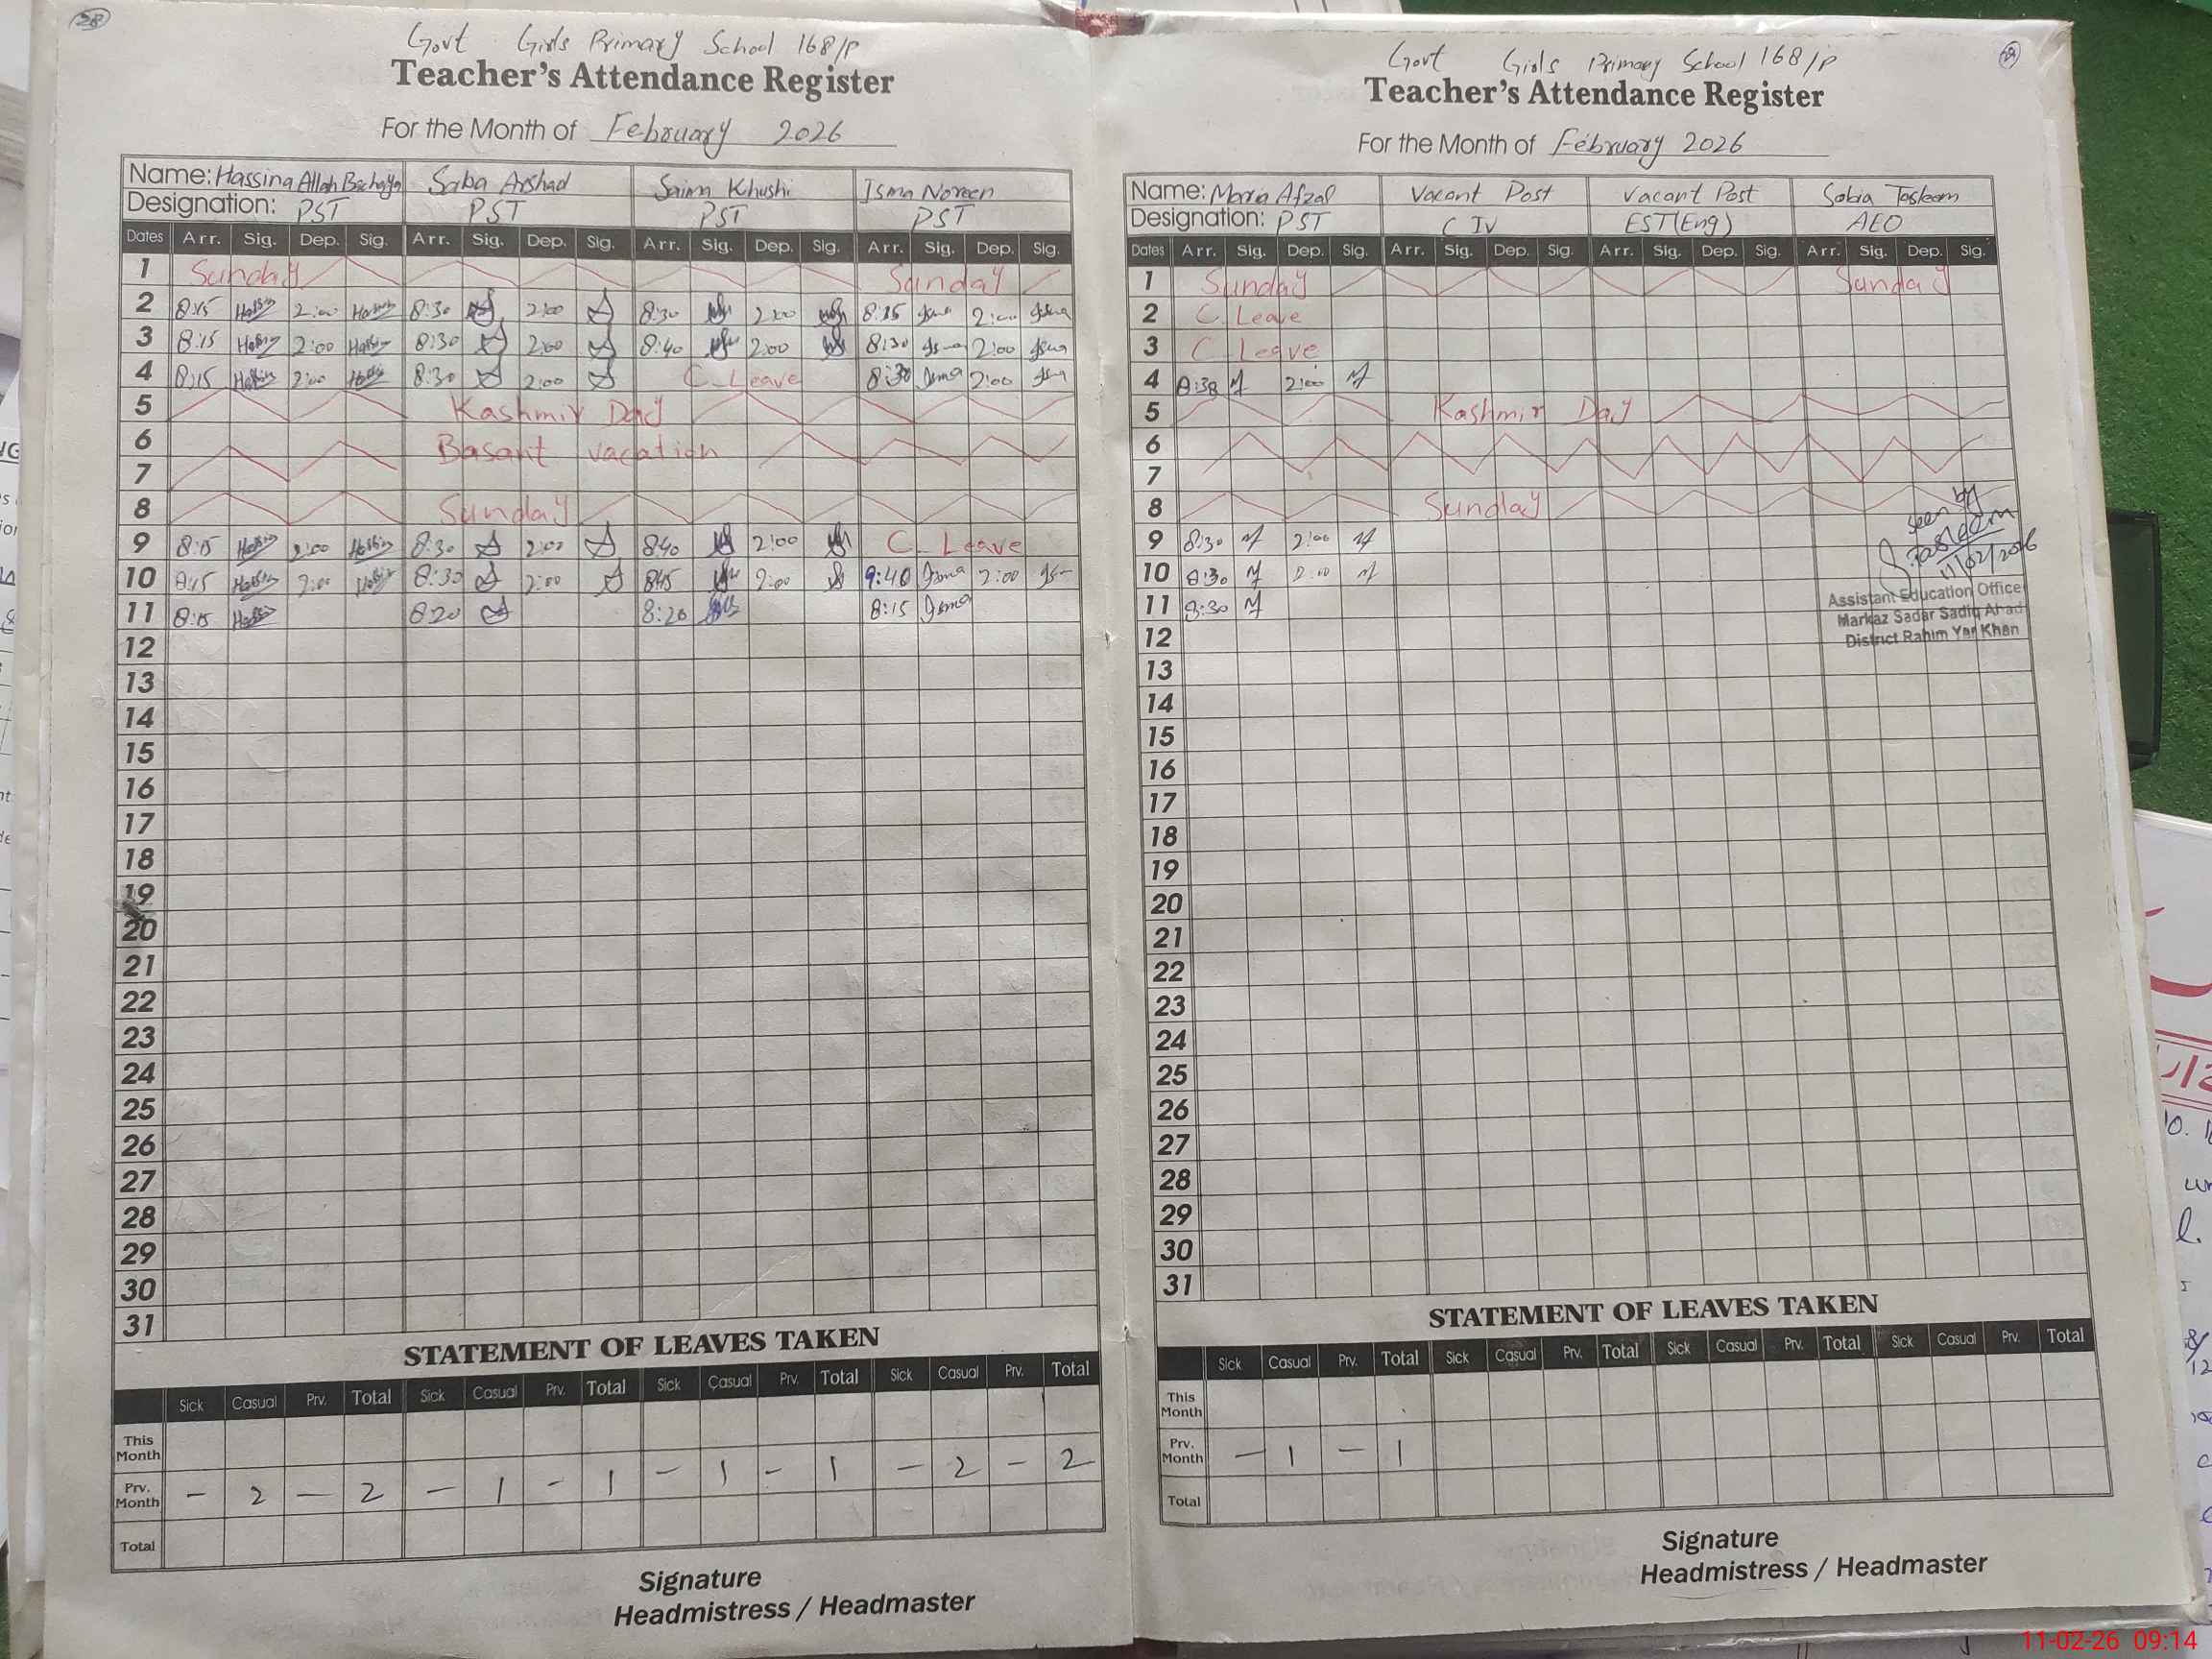 28
Govt Girls Primary School 168/P
Teacher's Attendance Register
For the Month of February 2026
Name: Hassina Allah Bachaya Saba Arshad Saima Khushi Isma Noreen
Designation: PST PST PST PST
Dates Arr. Sig. Dep. Sig. Arr. Sig. Dep. Sig. Arr. Sig. Dep. Sig. Arr. Sig. Dep. Sig.
1 Sunday Sunday
2 8:15 2:00 8:30 2:00 8:30 2:00 8:15 Isma 2:00 Isma
3 8:15 2:00 8:30 2:00 8:40 2:00 8:30 Isma 2:00 Isma
4 8:15 2:00 8:30 2:00 C. Leave 8:30 Isma 2:00 Isma
5 Kashmir Day
6 Basant vacation
7
8 Sunday
9 8:15 2:00 8:30 2:00 8:40 2:00 C. Leave
10 8:15 2:00 8:30 2:00 8:45 2:00 9:40 Isma 2:00
11 8:15 8:20 8:20 8:15 Isma
12
13
14
15
16
17
18
19
20
21
22
23
24
25
26
27
28
29
30
31
STATEMENT OF LEAVES TAKEN
Sick Casual Prv. Total Sick Casual Prv. Total Sick Casual Prv. Total Sick Casual Prv. Total
This Month
Prv. Month - 2 - 2 - 1 - 1 - 1 - 1 - 2 - 2
Total
Signature
Headmistress / Headmaster
Govt Girls Primary School 168/P
Teacher's Attendance Register
For the Month of February 2026
Name: Maria Afzal Vacant Post Vacant Post Sobia Tasleem
Designation: PST C IV EST(Eng) AEO
Dates Arr. Sig. Dep. Sig. Arr. Sig. Dep. Sig. Arr. Sig. Dep. Sig. Arr. Sig. Dep. Sig.
1 Sunday Sunday
2 C. Leave
3 C. Leave
4 8:38 M 2:00 M
5 Kashmir Day
6
7
8 Sunday
9 8:30 M 2:00 M
10 8:30 M 2:00 M
11 8:30 M
12
13
14
15
16
17
18
19
20
21
22
23
24
25
26
27
28
29
30
31
Seen by
Tasleem
11/02/2026
Assistant Education Officer
Markaz Sadar Sadiq Abad
District Rahim Yar Khan
STATEMENT OF LEAVES TAKEN
Sick Casual Prv. Total Sick Casual Prv. Total Sick Casual Prv. Total Sick Casual Prv. Total
This Month
Prv. Month - 1 - 1
Total
Signature
Headmistress / Headmaster
11-02-26 09:14